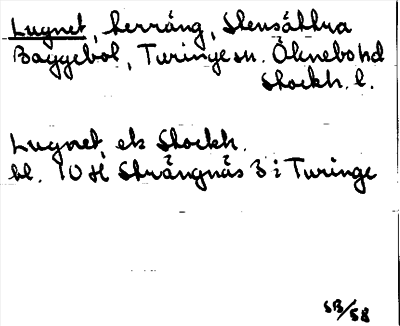 Lugnet, herräng, Stensåkra
Baggebol, Turinge sn. Öknebo hd
Stockh. l.
Lugnet, ek Stockh.
bl. 10 H Strängnäs 3 i Turinge
SB/58